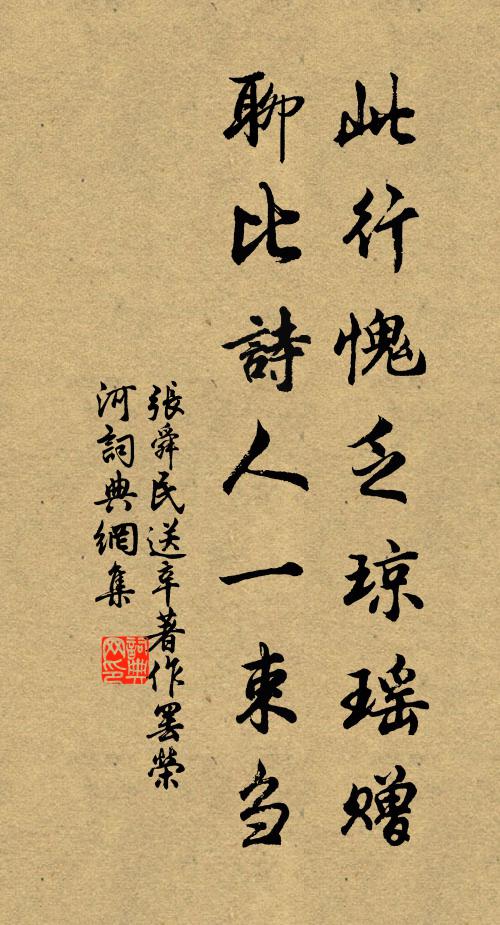 此行愧乏琼瑶赠
聊比詩人一束刍
張舜民送辛著作罢榮
河詞典網集
詞典网印